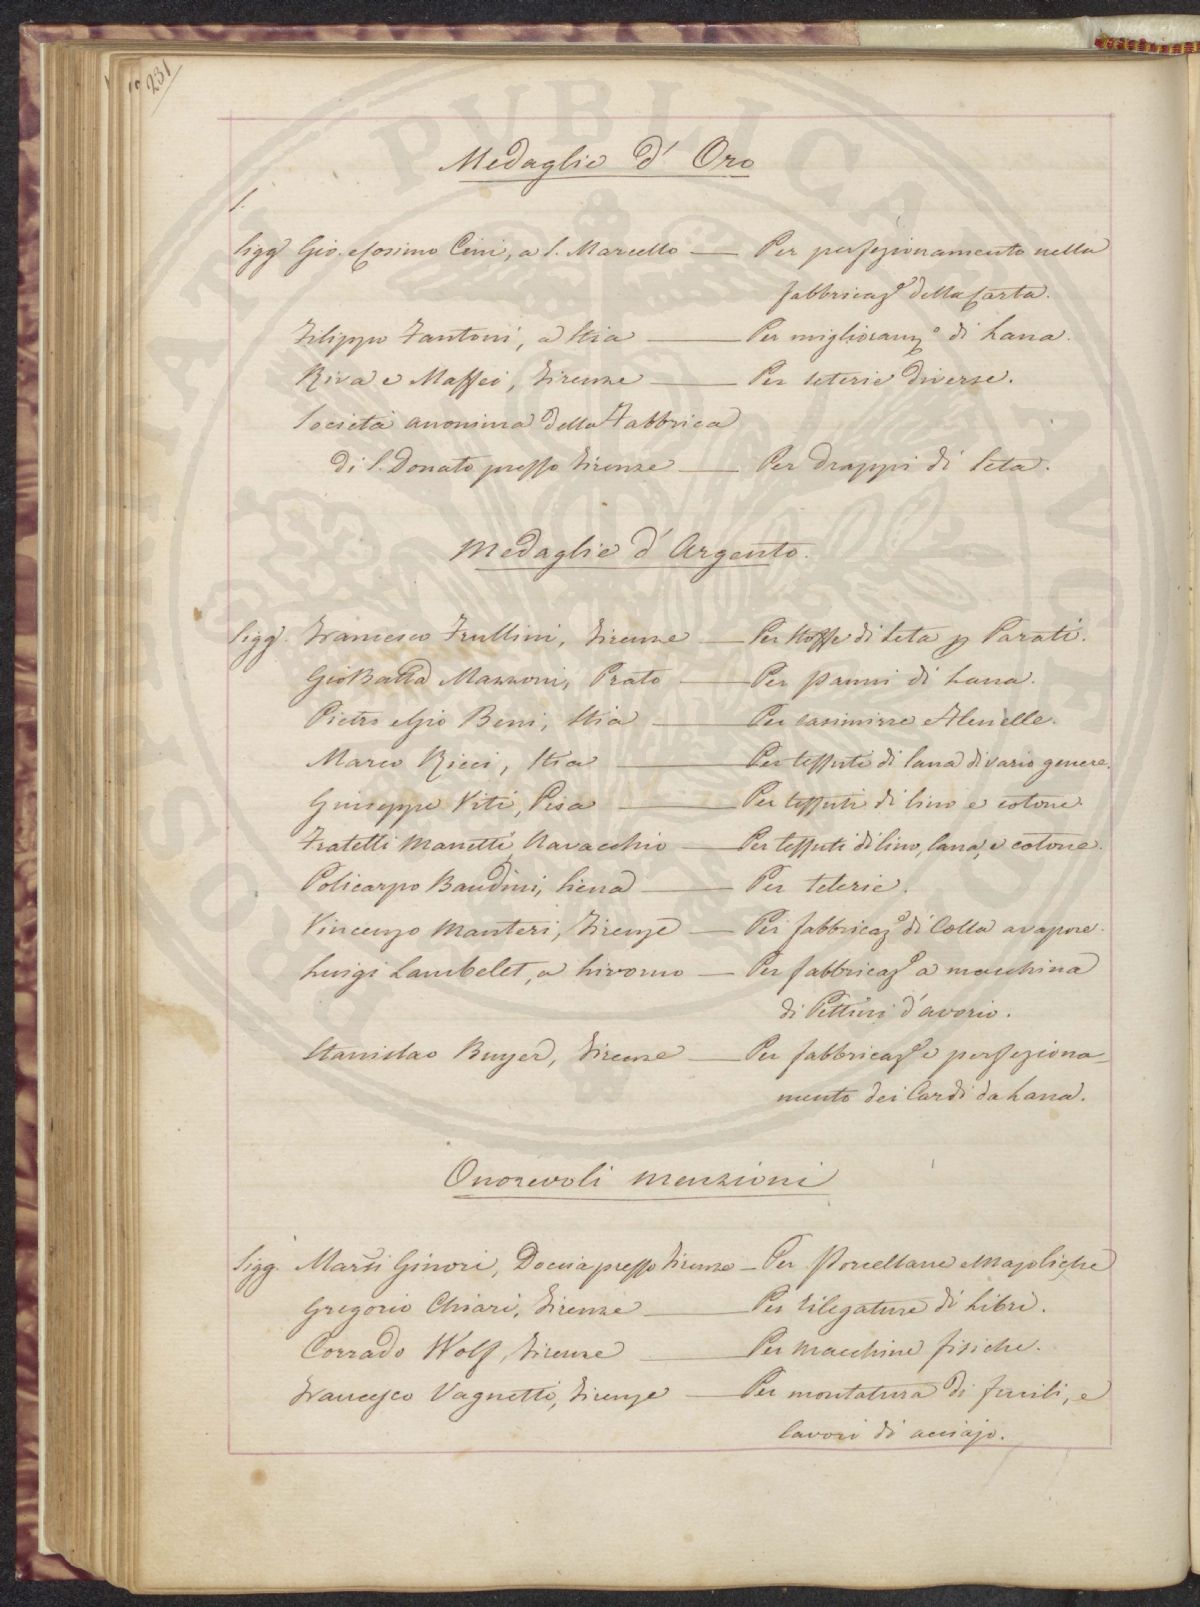 231
Medaglie d' Oro
1.
Sigg.i Gio. e Cosimo Cini, a S. Marcello — Per perfezionamento nella
fabbricaz.e della Carta.
Filippo Fantoni, a Stia — Per miglioram.o di Lana.
Riva e Maffei, Firenze — Per seterie diverse.
Società anonima della Fabbrica
di S. Donato presso Firenze — Per Drappi di Seta.
Medaglie d' Argento.
Sigg.i Francesco Frullini, Firenze — Per Stoffe di Seta p Parati.
Gio Batta Mazzoni, Prato — Per panni di Lana.
Pietro e Gio Beni, Stia — Per casimirre e flenelle.
Marco Ricci, Stia — Per tessuti di lana di vario genere.
Giuseppe Viti, Pisa — Per tessuti di lino e cotone.
Fratelli Manetti, Navacchio — Per tessuti di lino, lana, e cotone.
Policarpo Bandini, Siena — Per telerie.
Vincenzo Manteri, Firenze — Per fabbricaz.e di Colla a vapore.
Luigi Lambelet, a Livorno — Per fabbricaz.e a macchina
di Pettini d'avorio.
Stanislao Buyer, Firenze — Per fabbricaz.e e perfeziona-
mento dei Cardi da Lana.
Onorevoli menzioni
Sigg. Mar. Ginori, Doccia presso Firenze — Per Porcellane e Majoliche
Gregorio Chiari, Firenze — Per rilegature di Libri.
Corrado Wolf, Firenze — Per macchine fisiche.
Francesco Vagnetti, Firenze — Per montatura di fucili, e
lavori di acciajo.